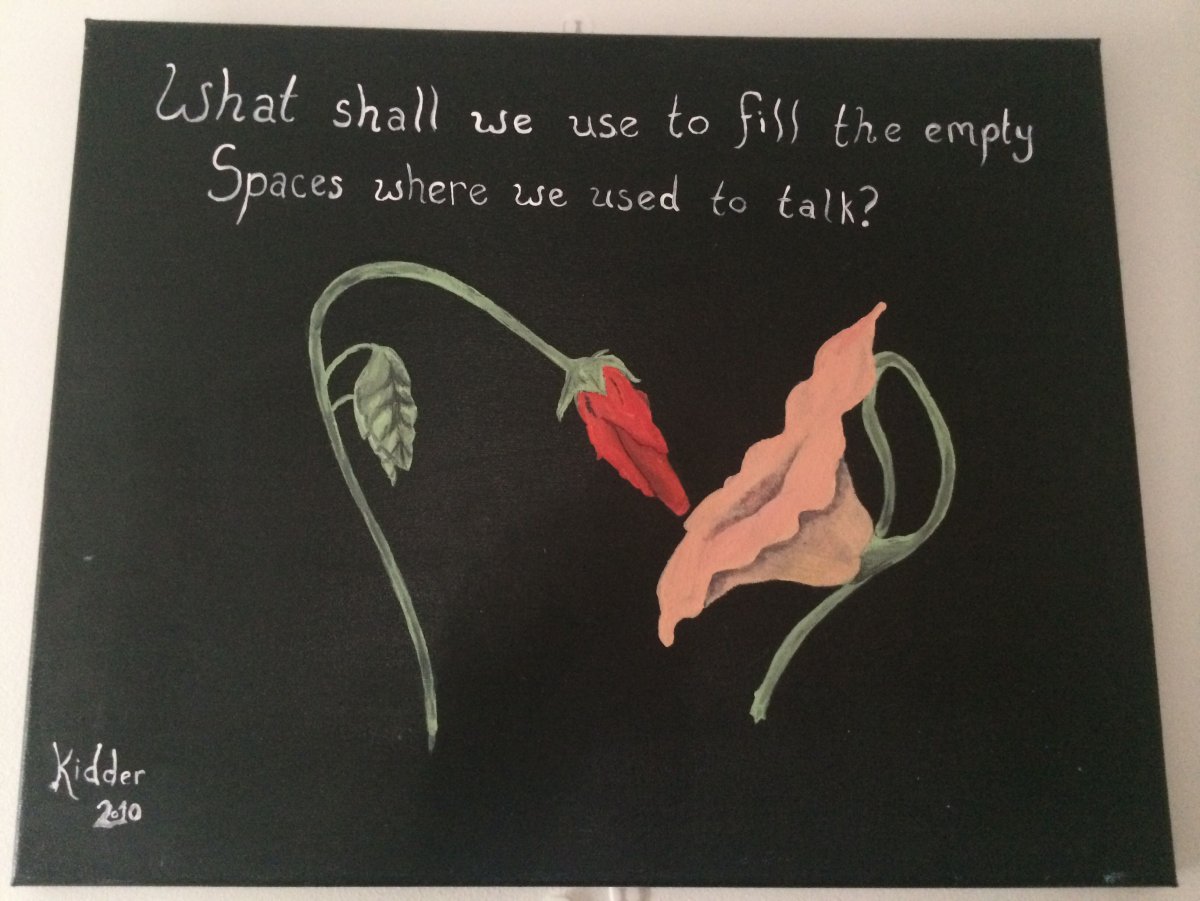 What shall we use to fill the empty
Spaces where we used to talk?
Kidder
2010